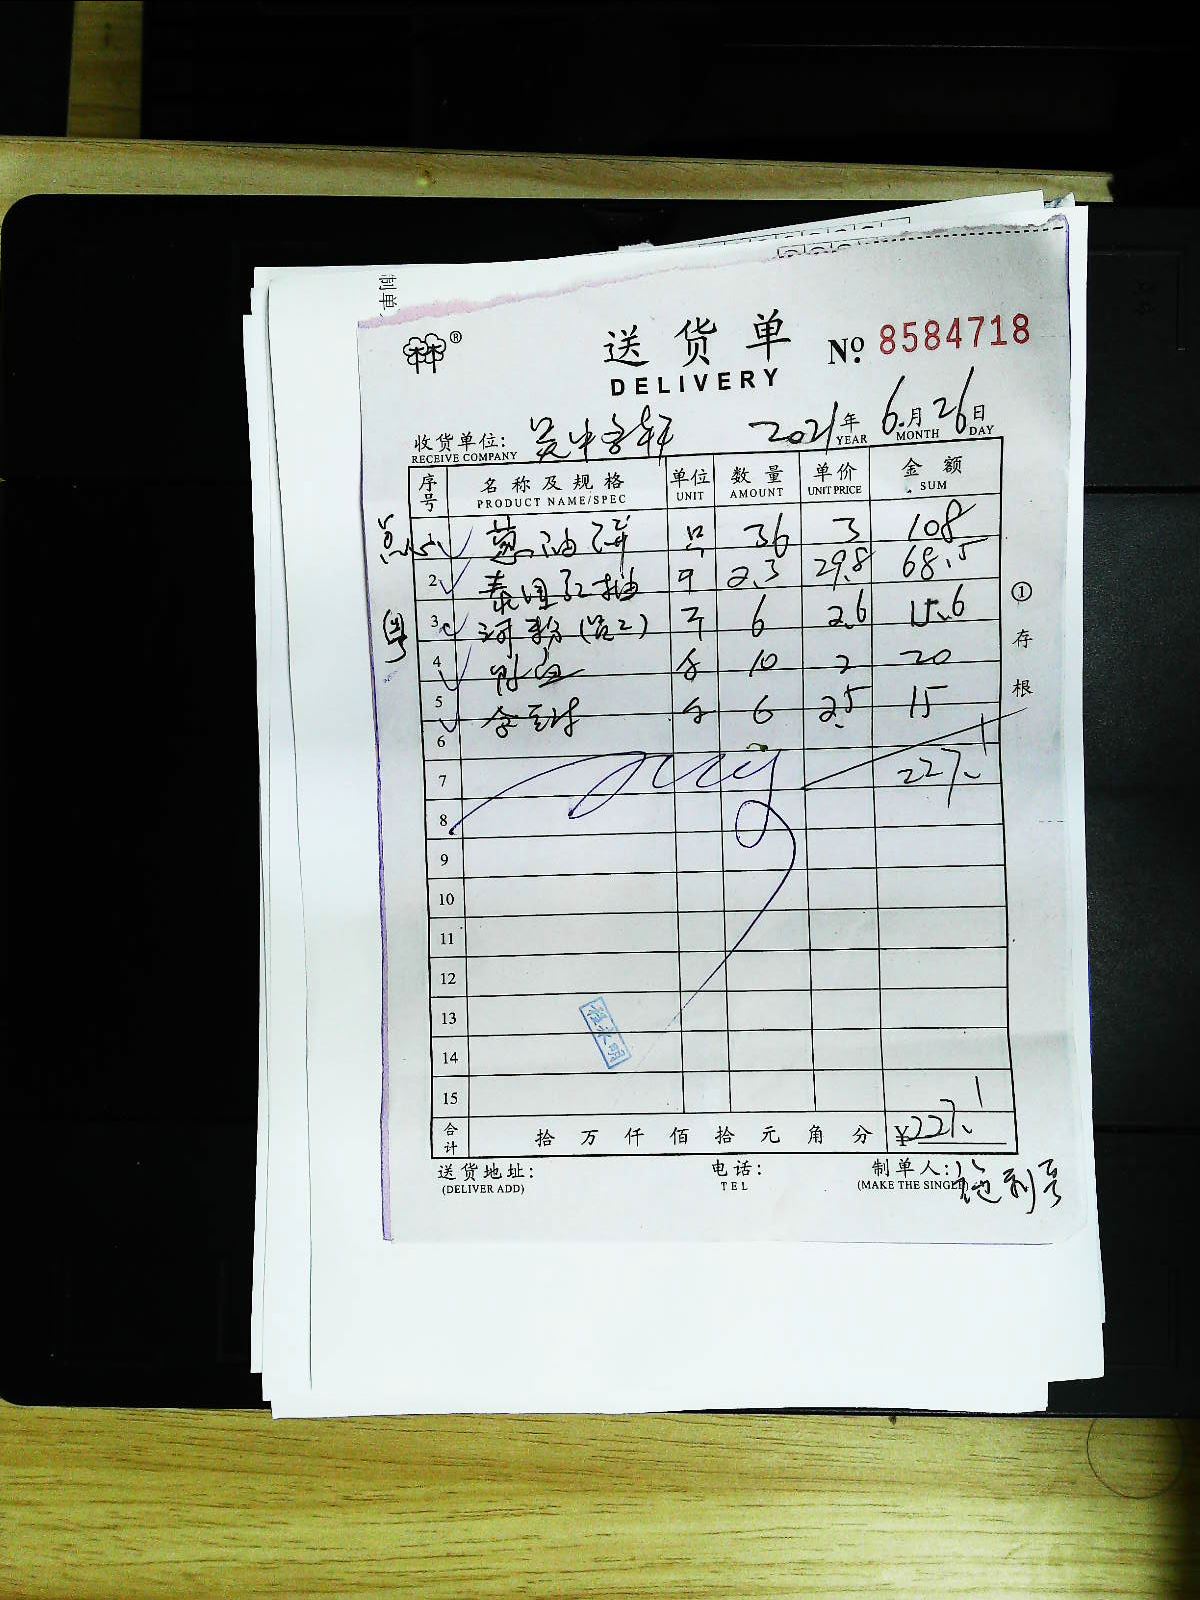 制单
®
送货单
DELIVERY
No. 8584718
收货单位: 吴中容轩 2021年 6月 26日
RECEIVE COMPANY YEAR MONTH DAY
序号 名称及规格 单位 数量 单价 金额
PRODUCT NAME/SPEC UNIT AMOUNT UNIT PRICE SUM
点心 1 葱油饼 只 36 3 108
2 斤 2.3 29.8 68.5
粤 3 河粉 斤 6 2.6 15.6
4 10 2 20
5 6 2.5 15
6
7 227.1
8
9
10
11
12
13
14
15
合计 拾 万 仟 佰 拾 元 角 分 ¥227.1
送货地址: 电话: 制单人: 施利
(DELIVER ADD) TEL (MAKE THE SINGLE)
①存根
程永明